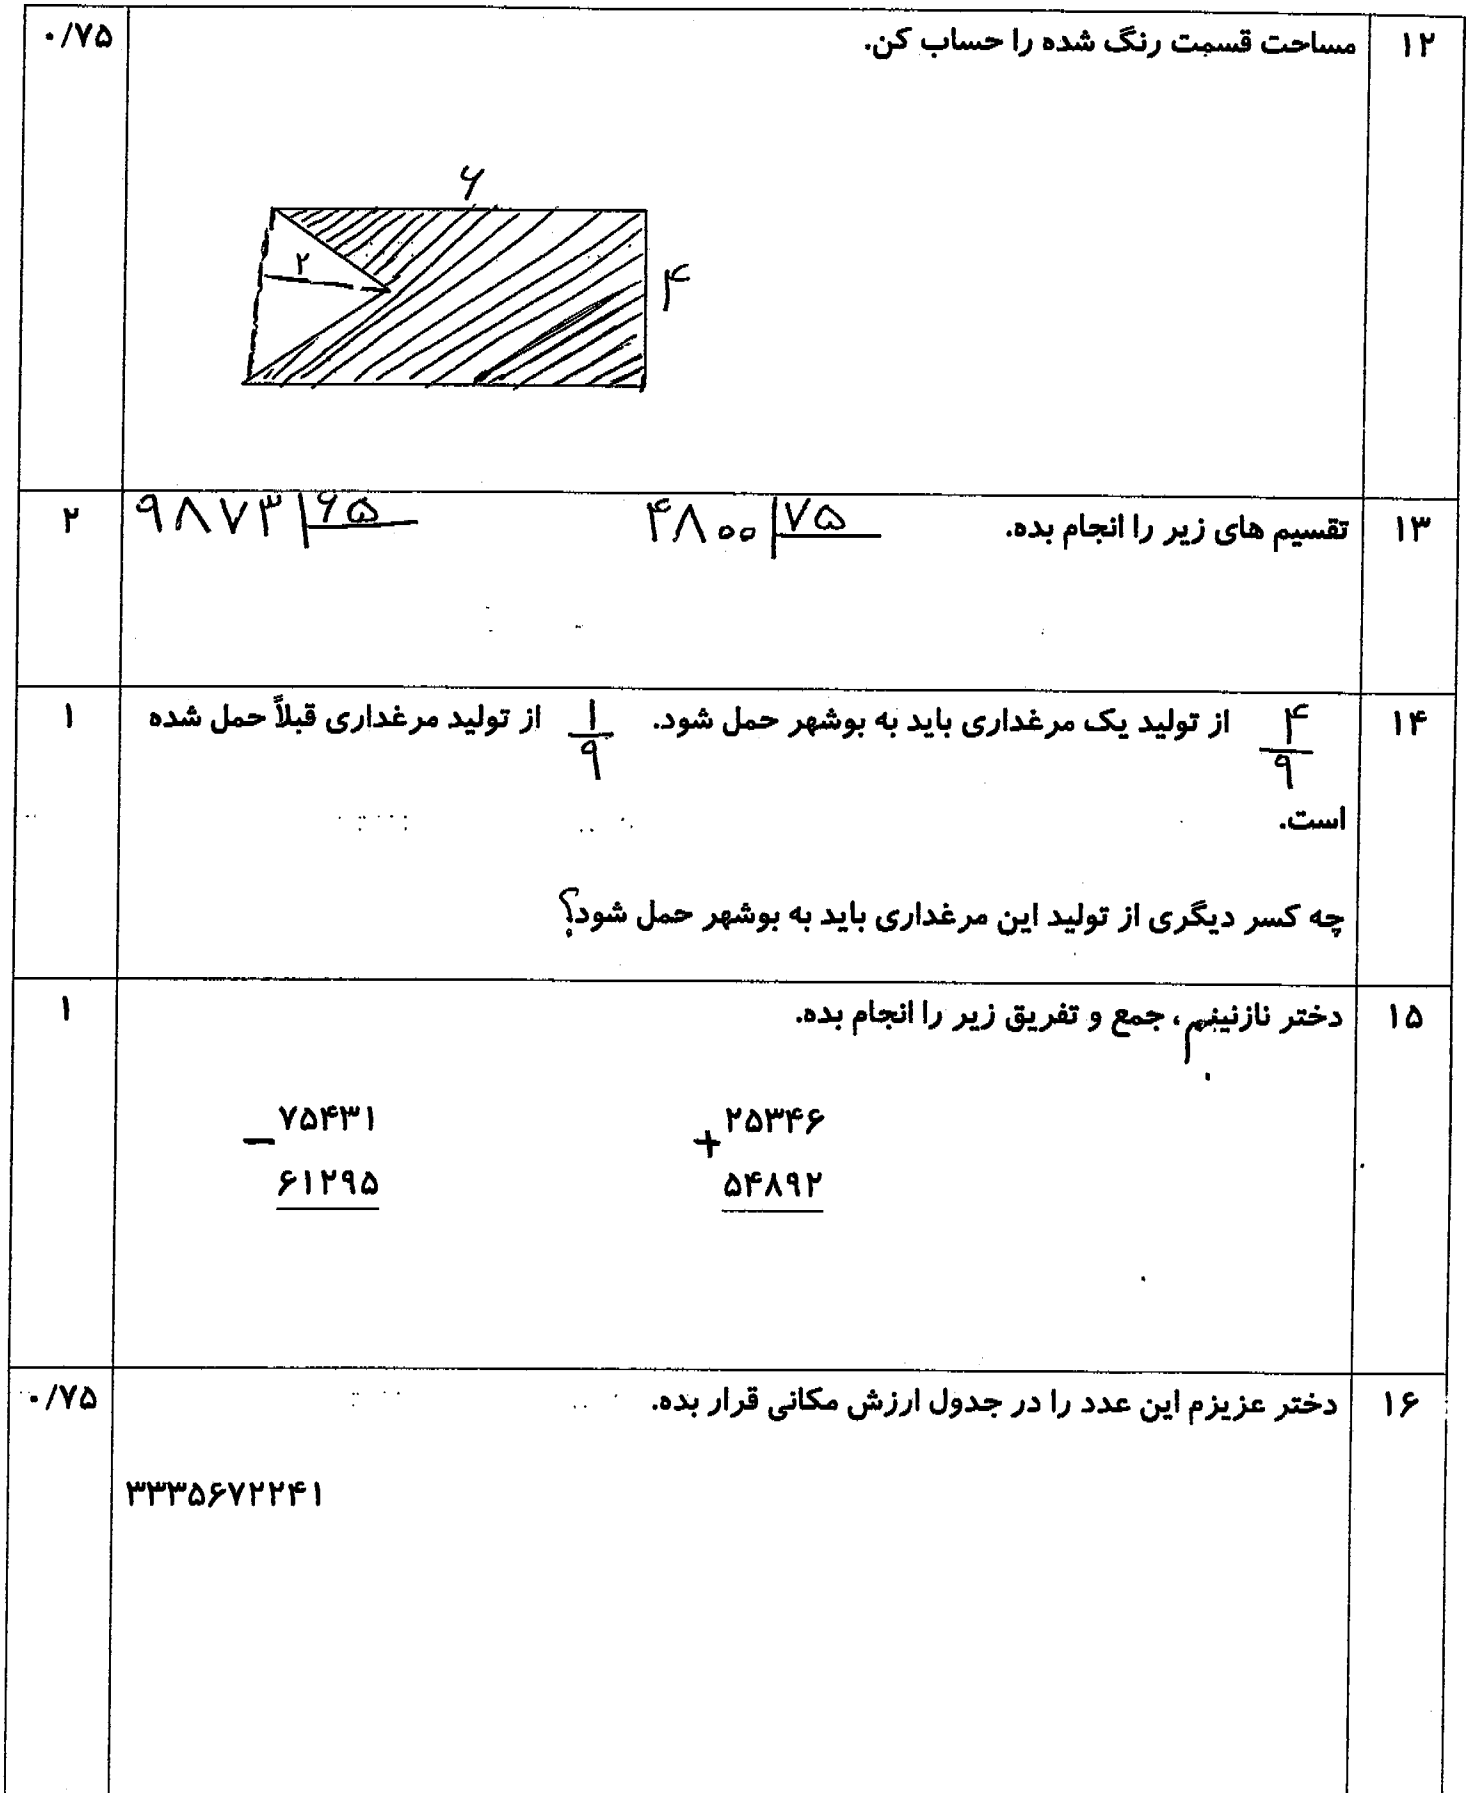 ۱۲ مساحت قسمت رنگ شده را حساب کن. ۰/۷۵
۶
۲
۴
۱۳ تقسیم های زیر را انجام بده. ۴۸۰۰ ۷۵ ۹۸۷۳ ۶۵ ۲
۱۴ ۴/۹ از تولید یک مرغداری باید به بوشهر حمل شود. ۱/۹ از تولید مرغداری قبلاً حمل شده ۱
است.
چه کسر دیگری از تولید این مرغداری باید به بوشهر حمل شود؟
۱۵ دختر نازنینم، جمع و تفریق زیر را انجام بده. ۱
۲۵۳۴۶ ۷۵۴۳۱
+ −
۵۴۸۹۲ ۶۱۲۹۵
۱۶ دختر عزیزم این عدد را در جدول ارزش مکانی قرار بده. ۰/۷۵
۳۳۳۵۶۷۲۲۴۱